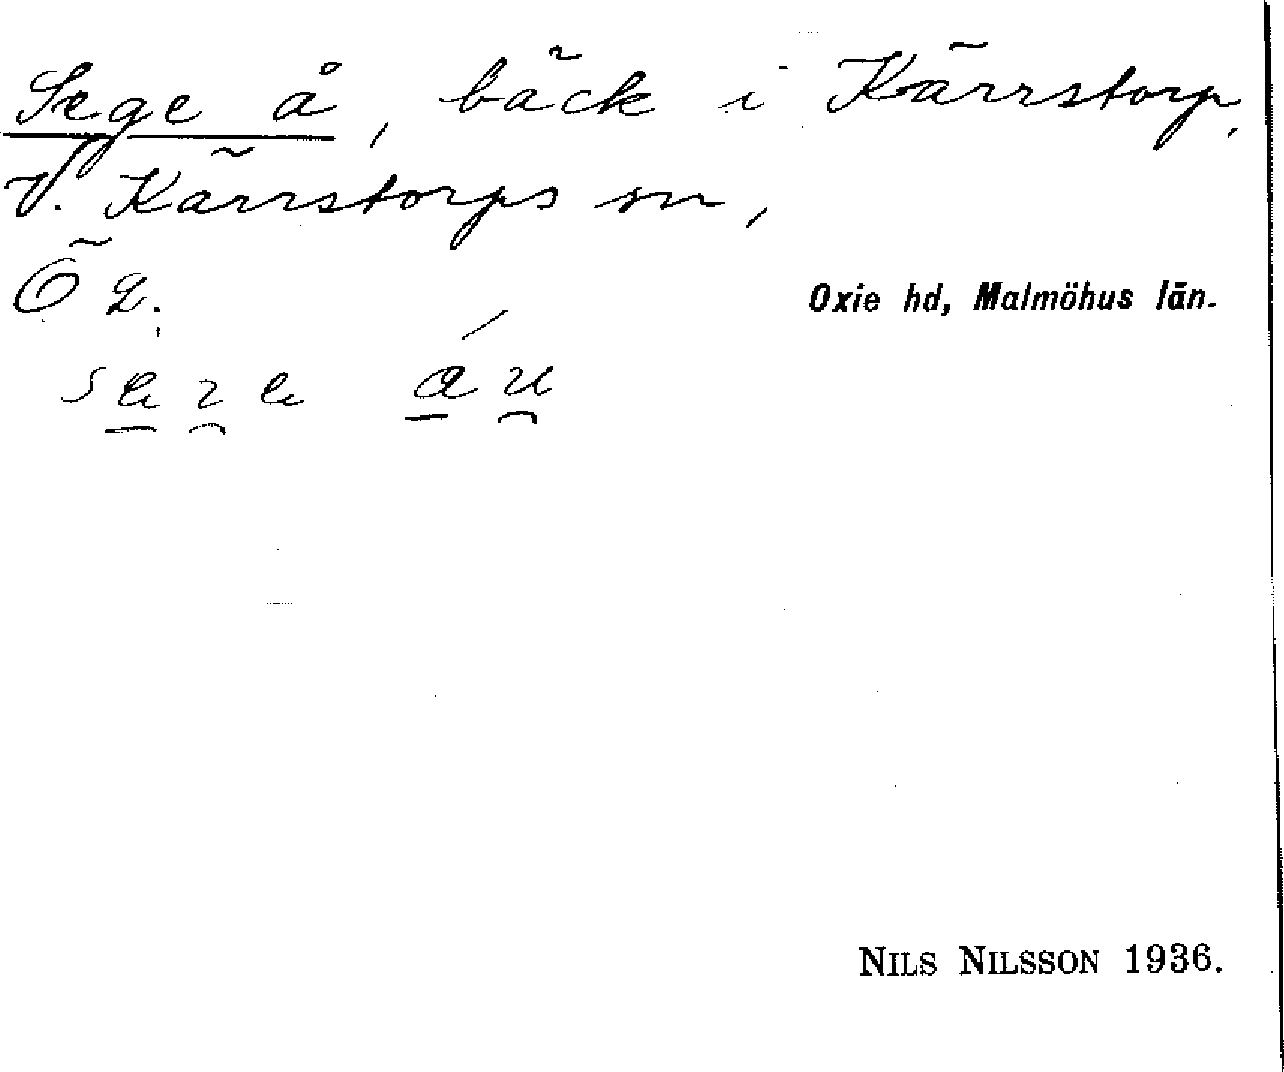 Sege å, bäck i Kärrstorp,
V. Kärrstorps sn,
Ö 2. Oxie hd, Malmöhus län.
NILS NILSSON 1936.